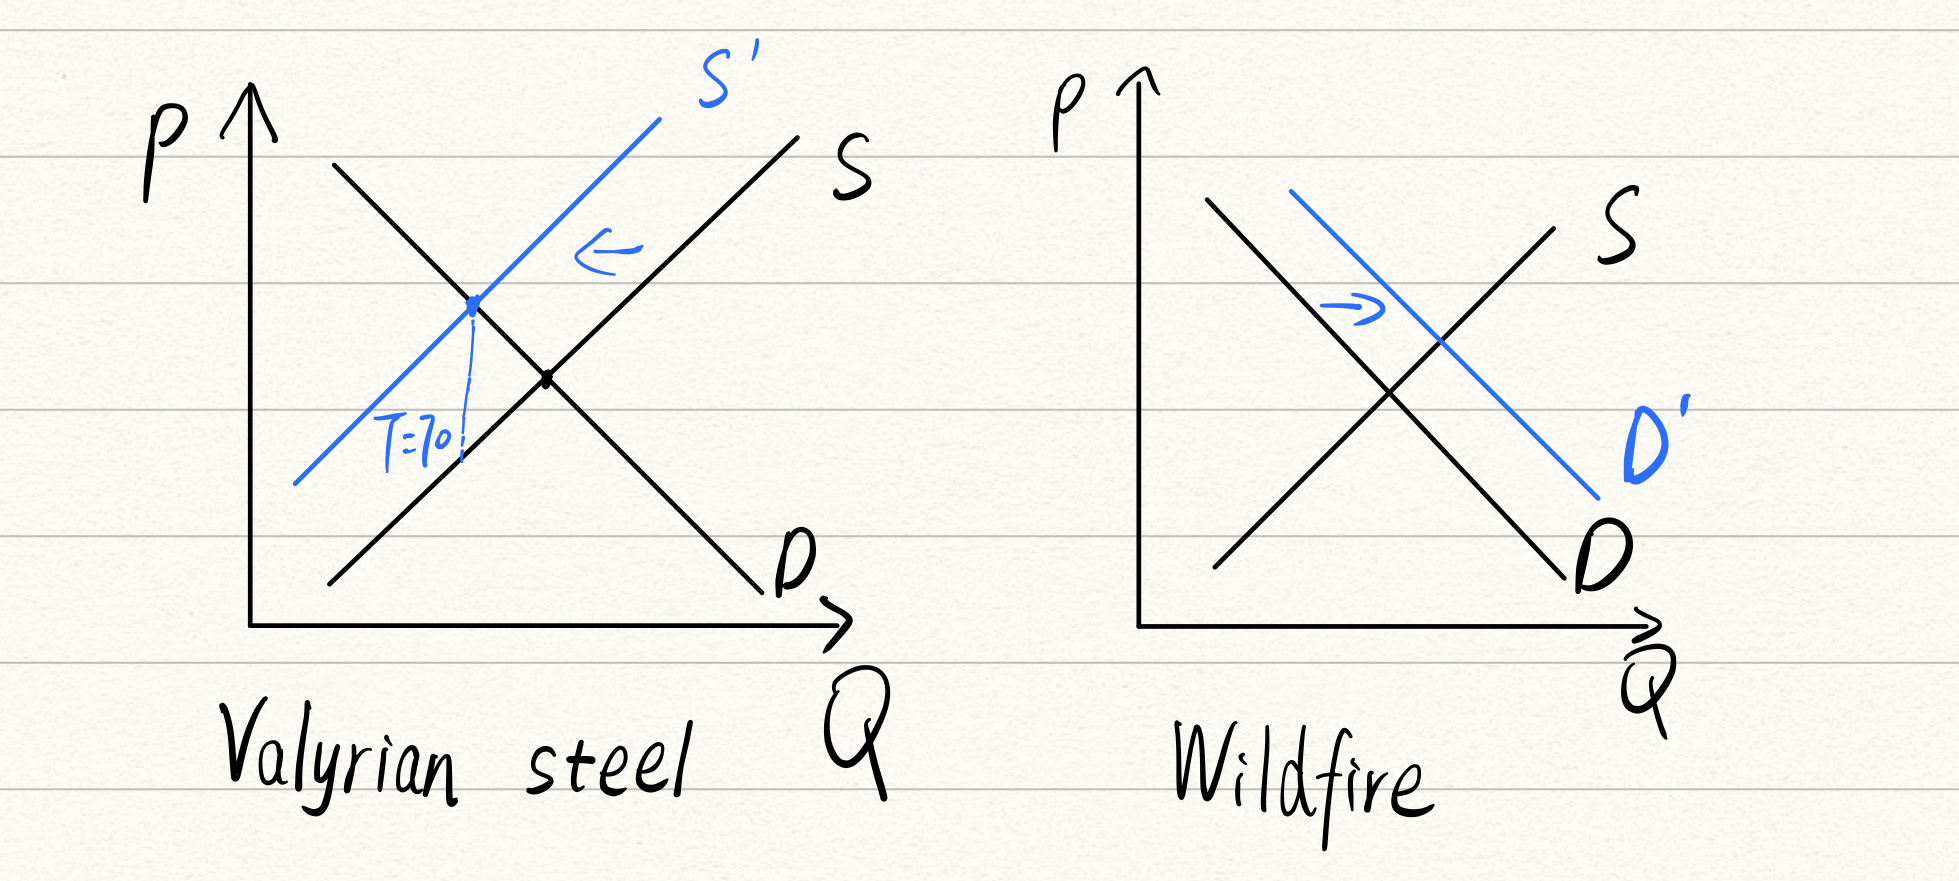 P
S'
S
T=70
D
Q
Valyrian steel
P
S
D'
D
Q
Wildfire